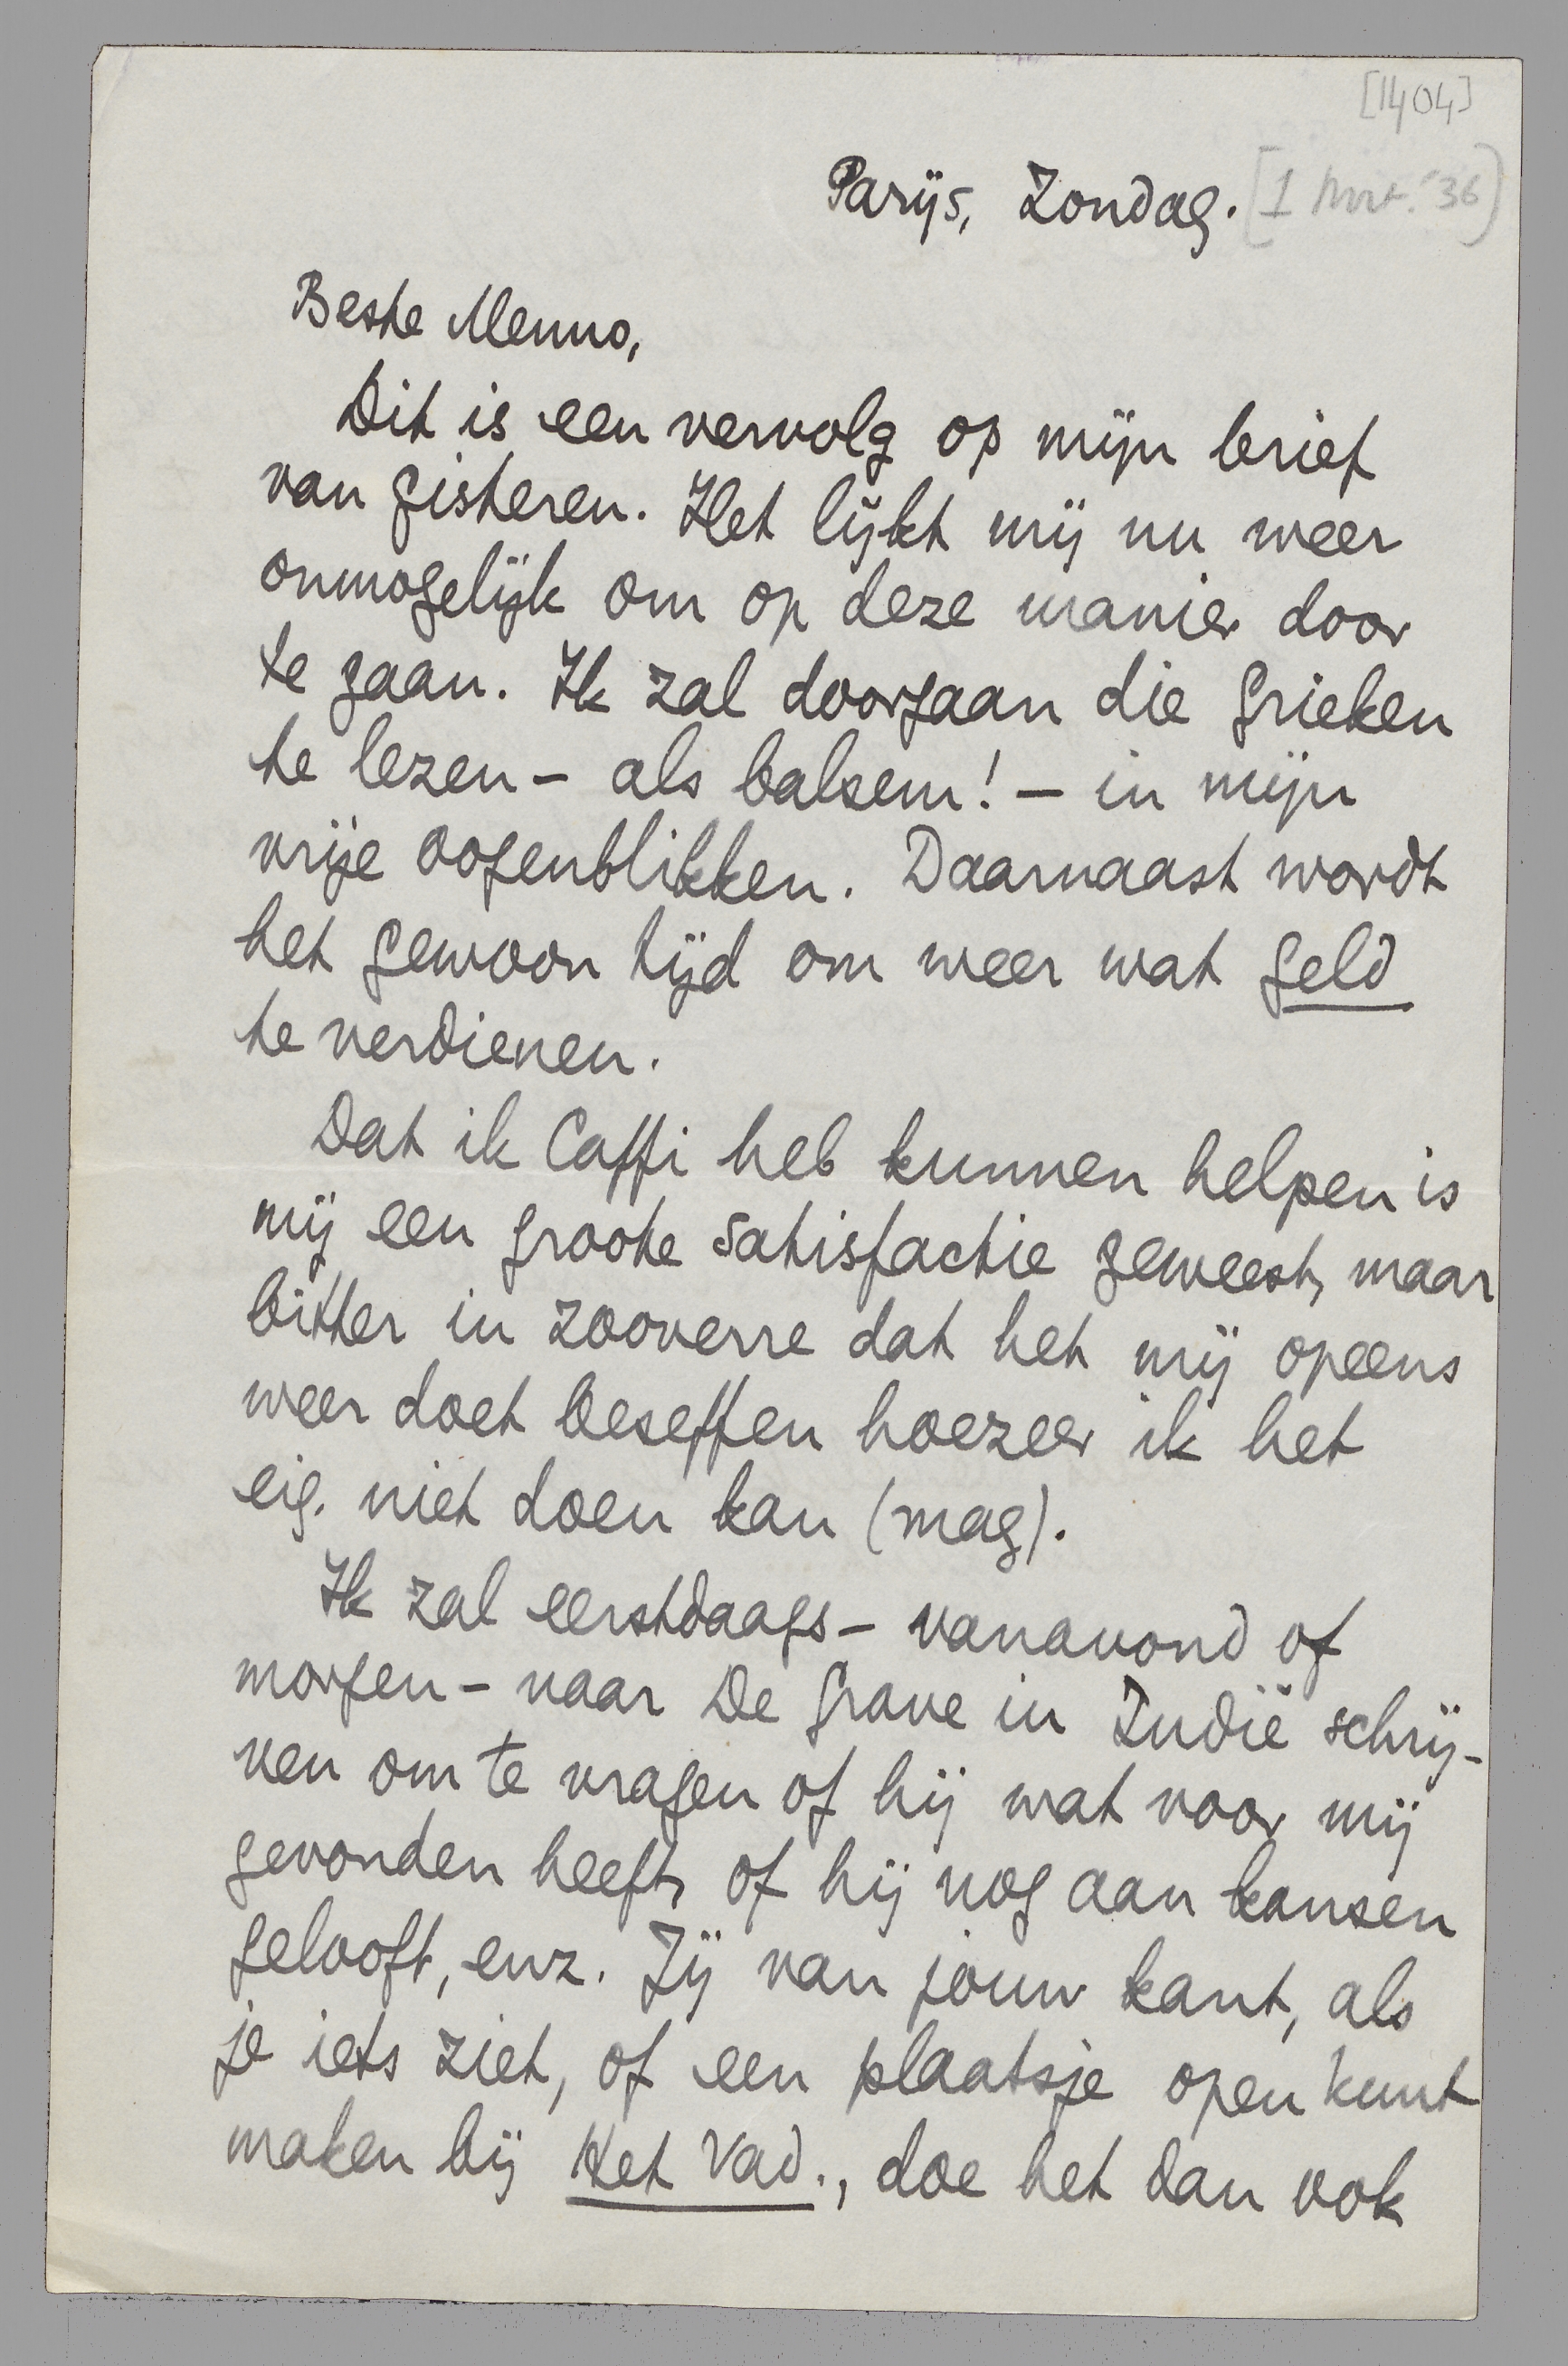 [1404]
Parijs, Zondag. [1 Mrt. '36]
Beste Menno,
Dit is een vervolg op mijn brief
van gisteren. Het lijkt mij nu weer
onmogelijk om op deze manier door
te gaan. Ik zal doorgaan die Grieken
te lezen – als balsem! – in mijn
vrije oogenblikken. Daarnaast wordt
het gewoon tijd om weer wat geld
te verdienen.
Dat ik Caffi heb kunnen helpen is
mij een groote satisfactie geweest, maar
bitter in zooverre dat het mij opeens
weer doet beseffen hoezeer ik het
eig. niet doen kan (mag).
Ik zal eerstdaags – vanavond of
morgen – naar De Grave in Indië schrij-
ven om te vragen of hij wat voor mij
gevonden heeft, of hij nog aan kansen
gelooft, enz. Jij van jouw kant, als
je iets ziet, of een plaatsje open kunt
maken bij Het Vad., doe het dan ook